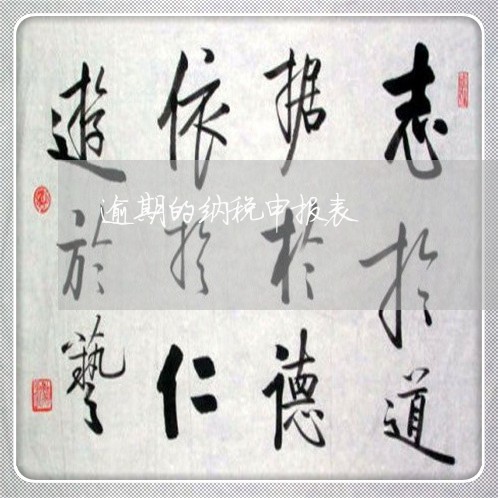 志於道
据於德
依於仁
遊於藝
逾期的纳税申报表